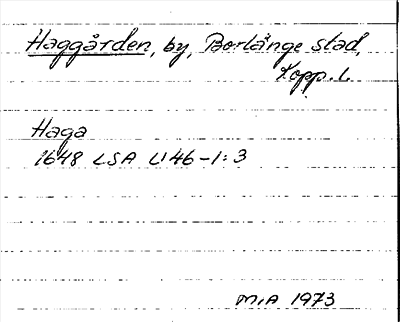 Haggården, by, Borlänge stad,
Kopp. l.
Haga
1648 LSA U46-1:3
MIA 1973